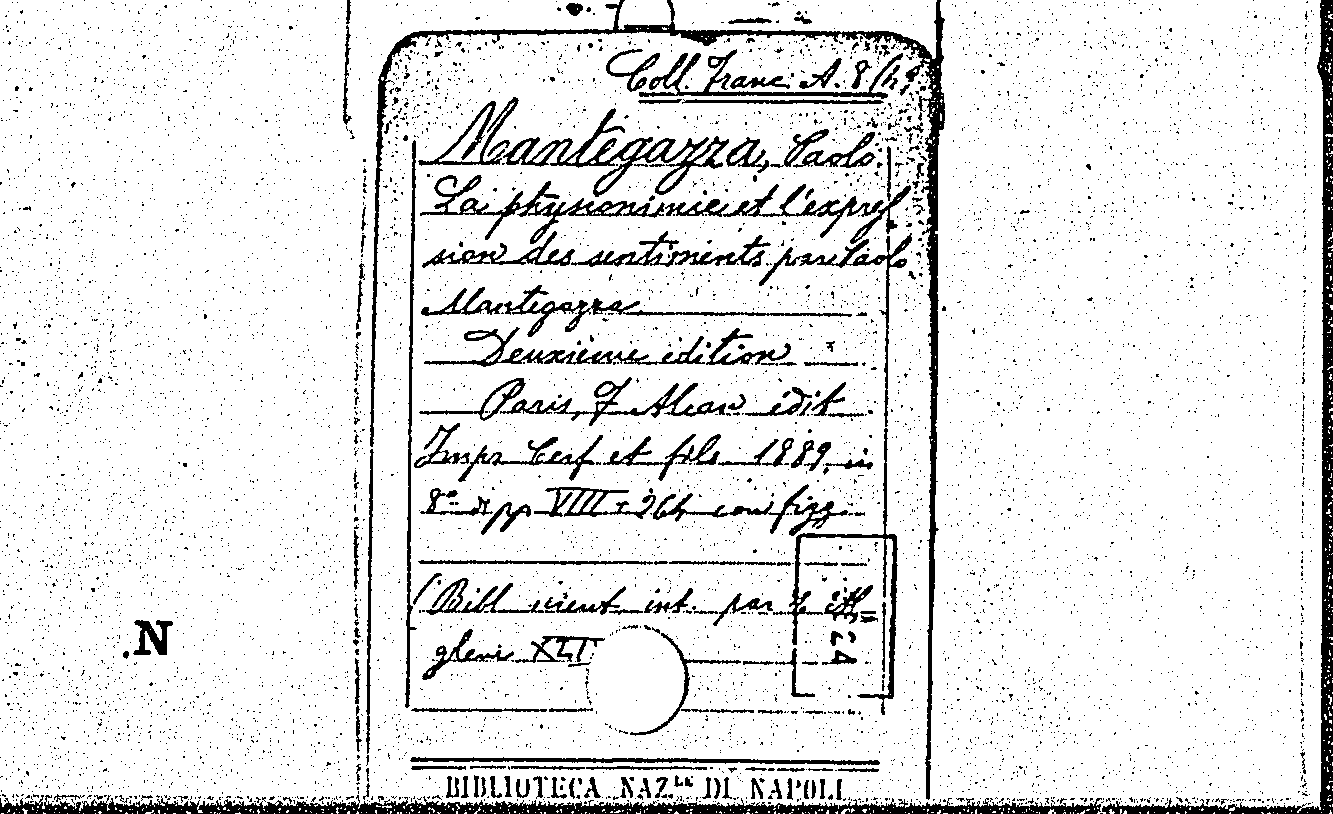 Coll. Franc. A. 8/
Mantegazza, Paolo.
La physionomie et l'expres
sion des sentiments par Paolo
Mantegazza
Deuxième édition
Paris, F Alcan édit.
Impr Cerf et fils 1889, in
8º di pp VIII + 264 con figg.
(Bibl scient int. par
N
BIBLIOTECA NAZ.LE DI NAPOLI